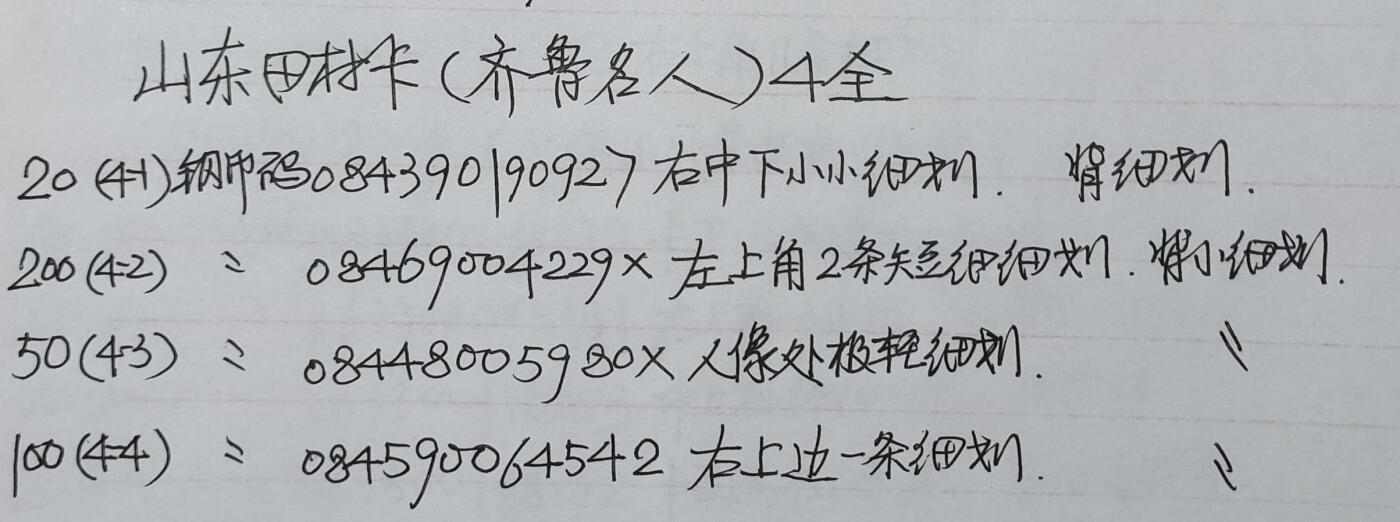 山东田村卡(齐鲁名人)4全
20(4-1)钢印码084390190927右中下小小细划. 背细划.
200(4-2) 〃 08469004229× 左上角2条短细细划.背小细划.
50(4-3) 〃 08448005980× 人像处极轻细划. 〃
100(4-4) 〃 084590064542 右上边一条细划. 〃